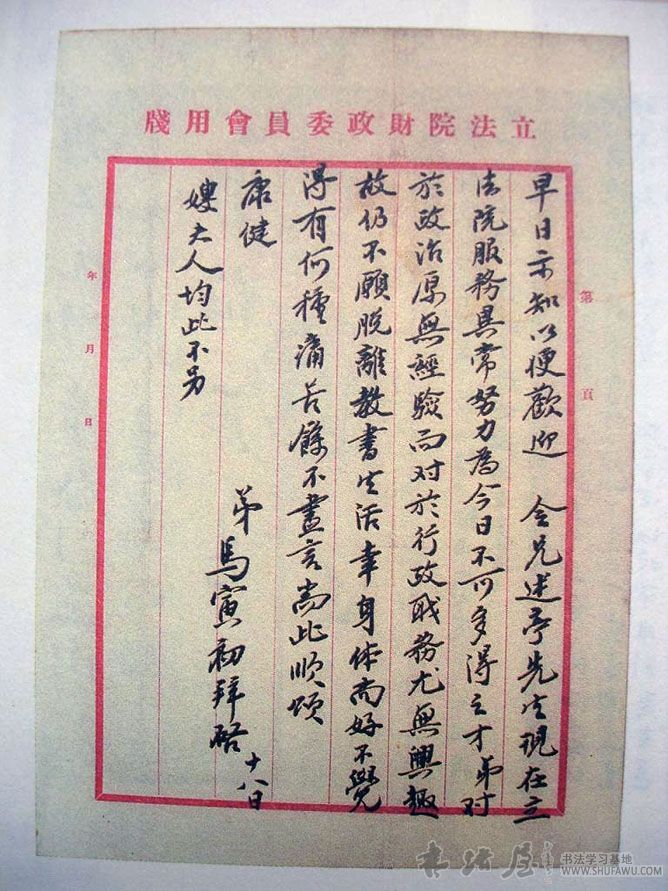 立法院財政委員會用牋
第 頁
早日示知以便歡迎 令兄述亭先生現在立
法院服務異常努力為今日不可多得之才弟对
於政治原無經驗而对於行政職務尤無興趣
故仍不願脱離教書生活幸身体尚好不覺
得有何種痛苦餘不盡言耑此順頌
康健
嫂夫人均此不另
弟馬寅初拜啓 十八日
年 月 日
书法屋
书法学习基地
WWW.SHUFAWU.COM